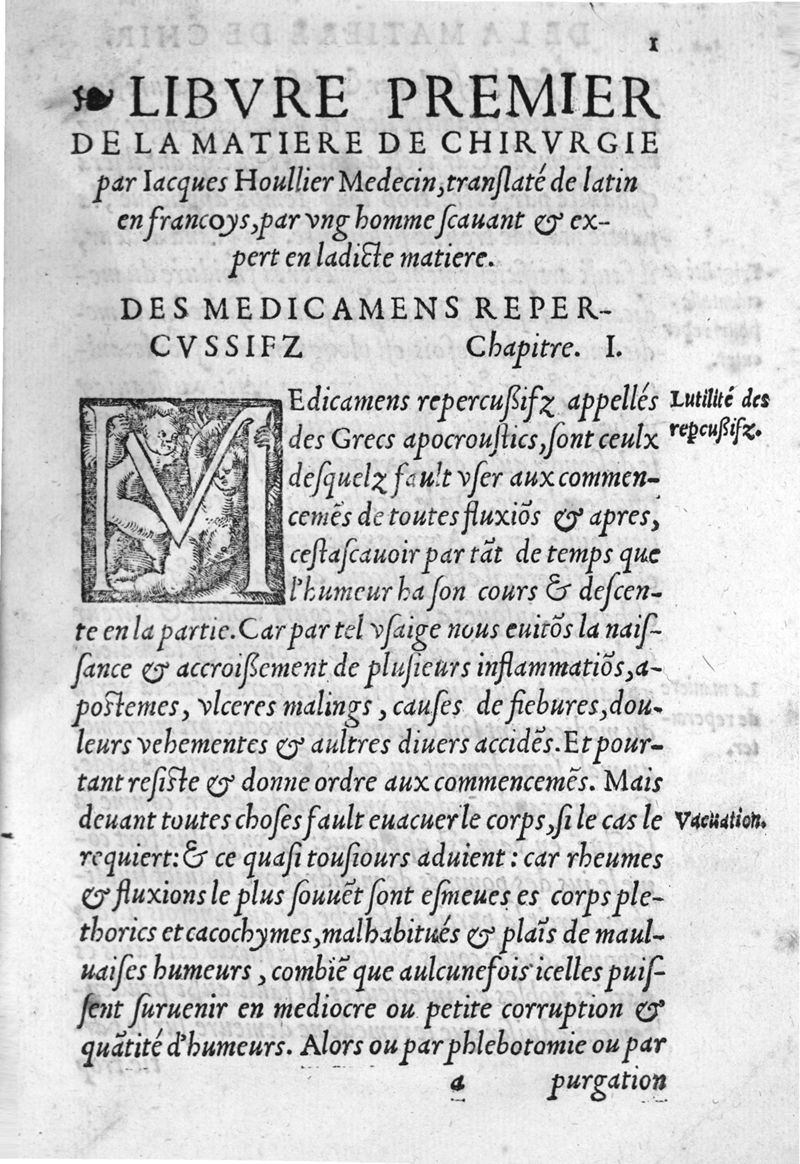 1
❧ LIBVRE PREMIER
DE LA MATIERE DE CHIRVRGIE
par Iacques Houllier Medecin, tranſlaté de latin
en francoys, par vng homme ſcauant & ex-
pert en ladicte matiere.
DES MEDICAMENS REPER-
CVSSIFZ Chapitre. I.
MEdicamens repercußifz appellés
des Grecs apocrouſtics, ſont ceulx
deſquelz fault vſer aux commen-
cemēs de toutes fluxiōs & apres,
ceſtaſcauoir par tāt de temps que
l'humeur ha ſon cours & deſcen-
te en la partie. Car par tel vſaige nous euitōs la naiſ-
ſance & accroißement de pluſieurs inflammatiōs, a-
poſtemes, vlceres malings, cauſes de fiebures, dou-
leurs vehementes & aultres diuers accidēs. Et pour-
tant reſiſte & donne ordre aux commencemēs. Mais
deuant toutes choſes fault euacuer le corps, ſi le cas le
requiert: & ce quaſi touſiours aduient: car rheumes
& fluxions le plus ſouuēt ſont eſmeues es corps ple-
thorics et cacochymes, malhabitués & plaīs de maul-
uaiſes humeurs, combiē que aulcunefois icelles puiſ-
ſent ſuruenir en mediocre ou petite corruption &
quātité d'humeurs. Alors ou par phlebotomie ou par
a purgation
Lutilité des
repcußifz.
Vacuation.